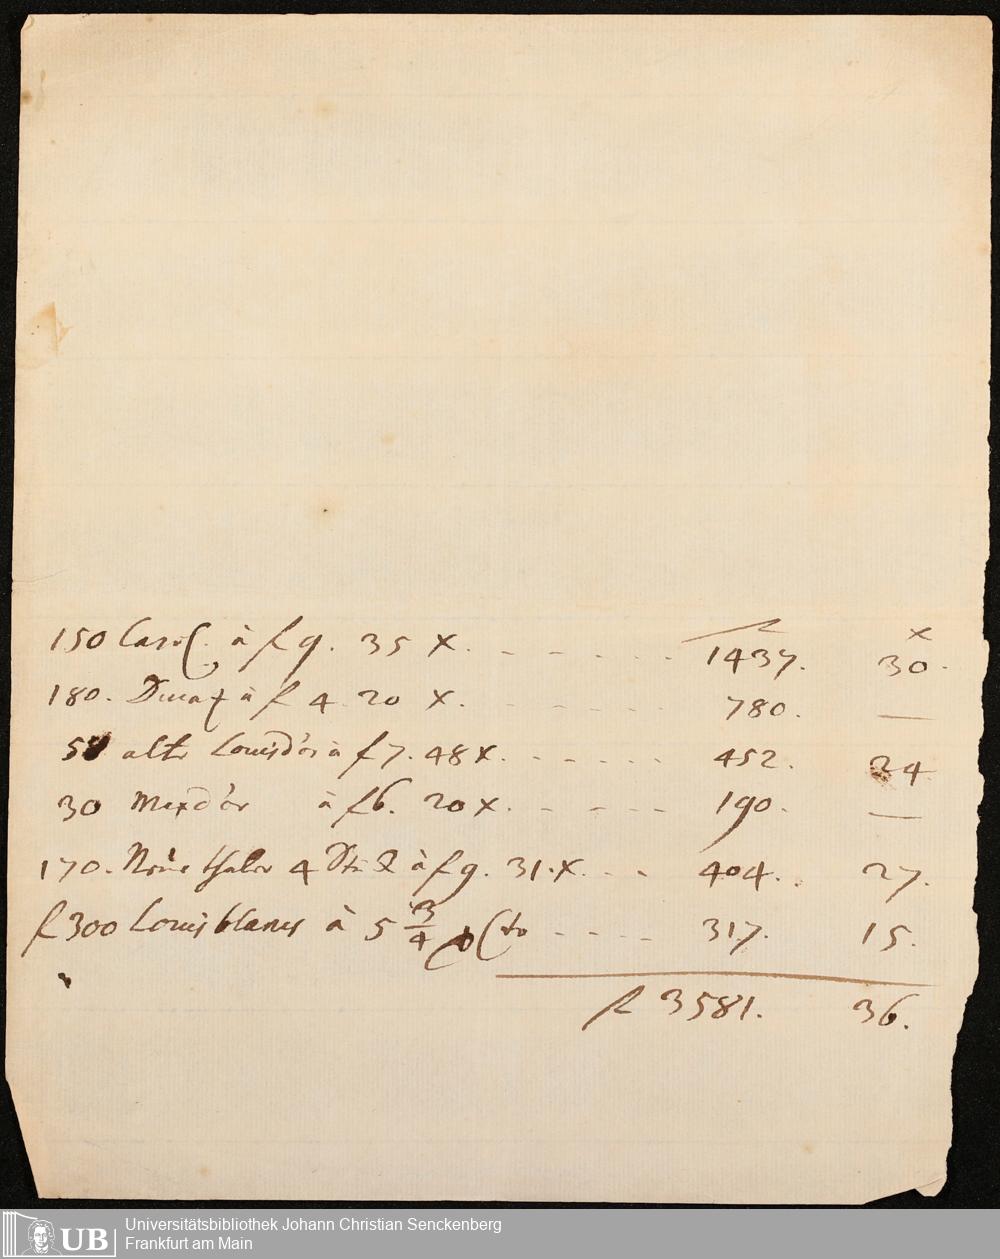 f x
150 Carol. à f 9. 35 x. - - - - - - 1437. 30.
180. Ducat à f 4 20 x. - - - - - - 780. —
58 alte Louisd'or à f 7. 48 x. - - - - - - 452. 24
30 Maxd'or à f 6. 20 x. - - - - - 190. —
170. Neüe thaler 4 Stük à f 9. 31. x. - - - 404. 27.
f 300 Louis blancs à 5 3/4 p Cto - - - - 317. 15.
f 3581. 36.
Universitätsbibliothek Johann Christian Senckenberg
UB Frankfurt am Main